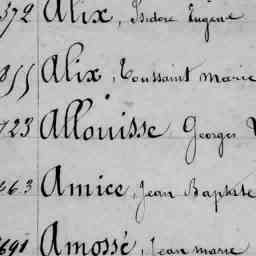 372 Alix, Isidore Eugène
855 Alix, Toussaint Marie
723 Allouisse Georges
663 Amice, Jean Baptiste
691 Amossé, Jean Marie